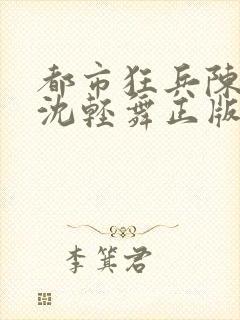 都市狂兵陳
沈輕舞正版
李箕君